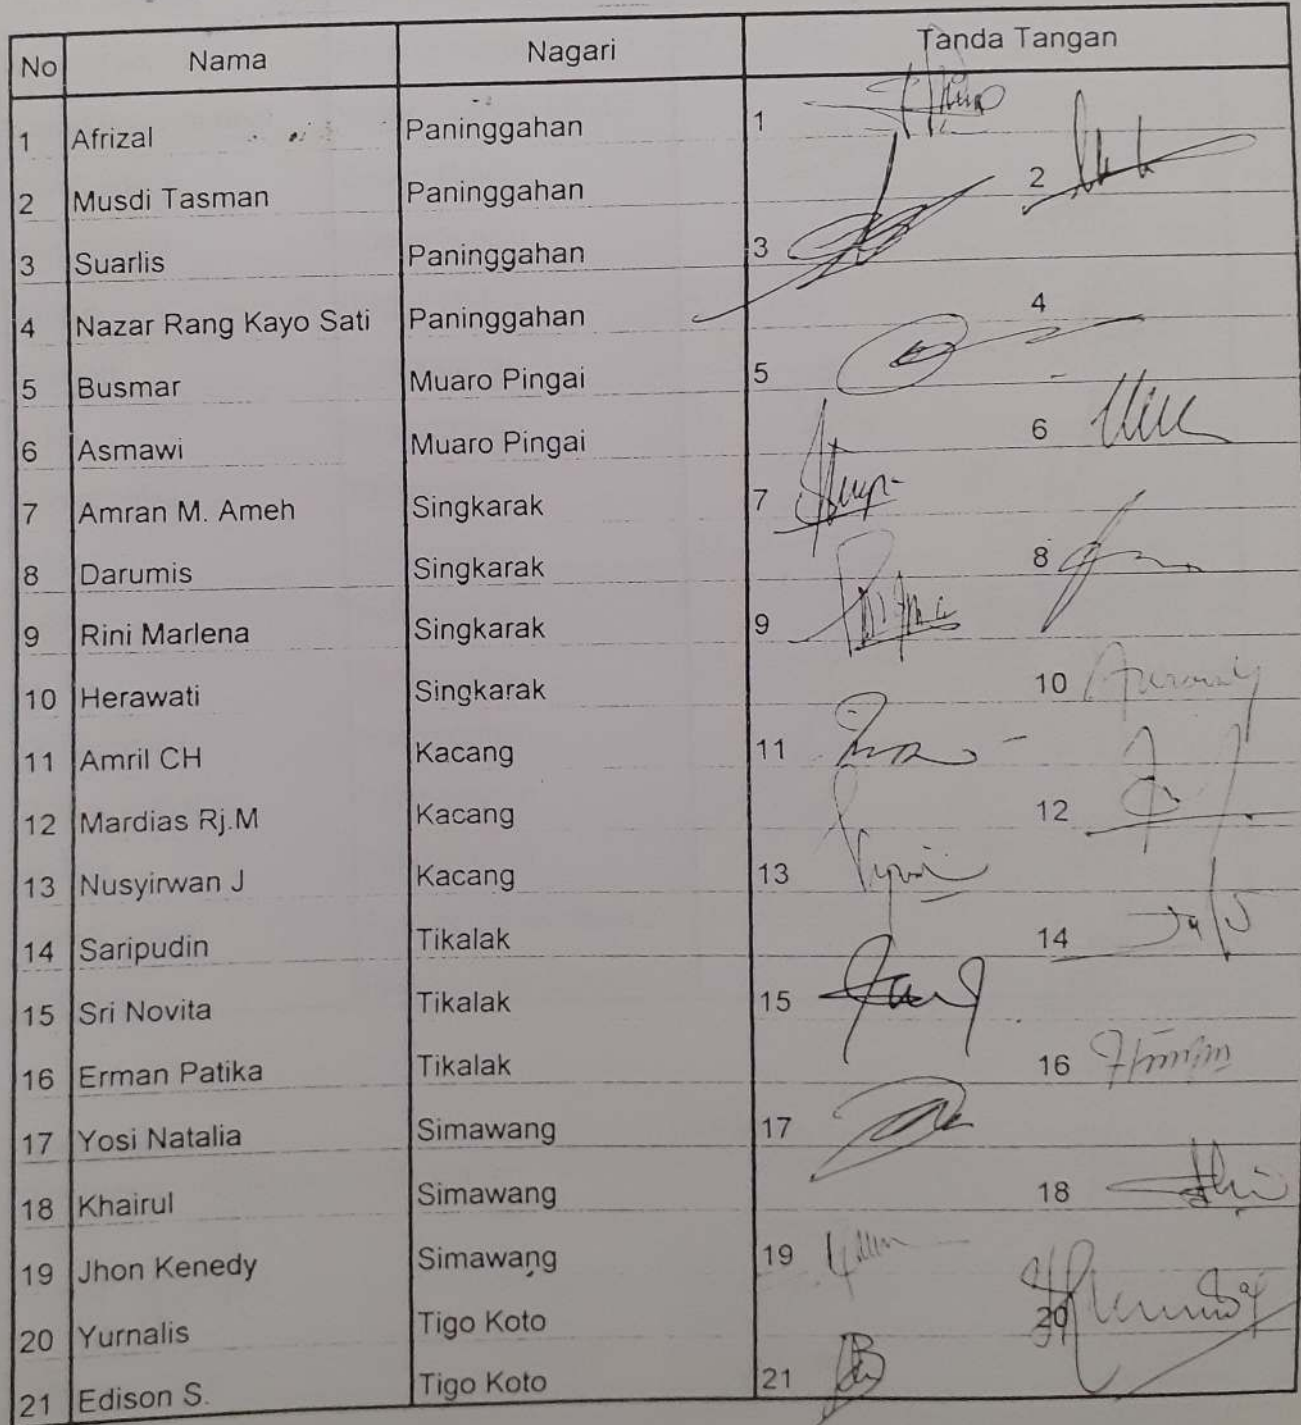 No Nama Nagari Tanda Tangan
1 Afrizal Paninggahan 1
2 Musdi Tasman Paninggahan 2
3 Suarlis Paninggahan 3
4 Nazar Rang Kayo Sati Paninggahan 4
5 Busmar Muaro Pingai 5
6 Asmawi Muaro Pingai 6
7 Amran M. Ameh Singkarak 7
8 Darumis Singkarak 8
9 Rini Marlena Singkarak 9
10 Herawati Singkarak 10
11 Amril CH Kacang 11
12 Mardias Rj.M Kacang 12
13 Nusyirwan J Kacang 13
14 Saripudin Tikalak 14
15 Sri Novita Tikalak 15
16 Erman Patika Tikalak 16
17 Yosi Natalia Simawang 17
18 Khairul Simawang 18
19 Jhon Kenedy Simawang 19
20 Yurnalis Tigo Koto 20
21 Edison S. Tigo Koto 21